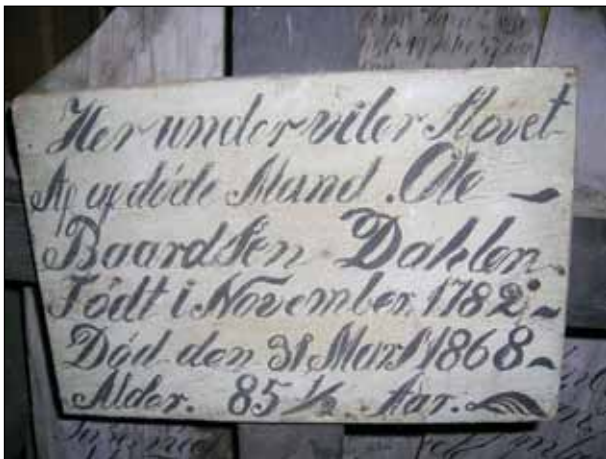 Her under viler Støvet
Af afdøde Mand. Ole
Baardsen Dahlen.
Født i November. 1782
Død den 31 Marz 1868
Alder. 85 1/2 Aar.